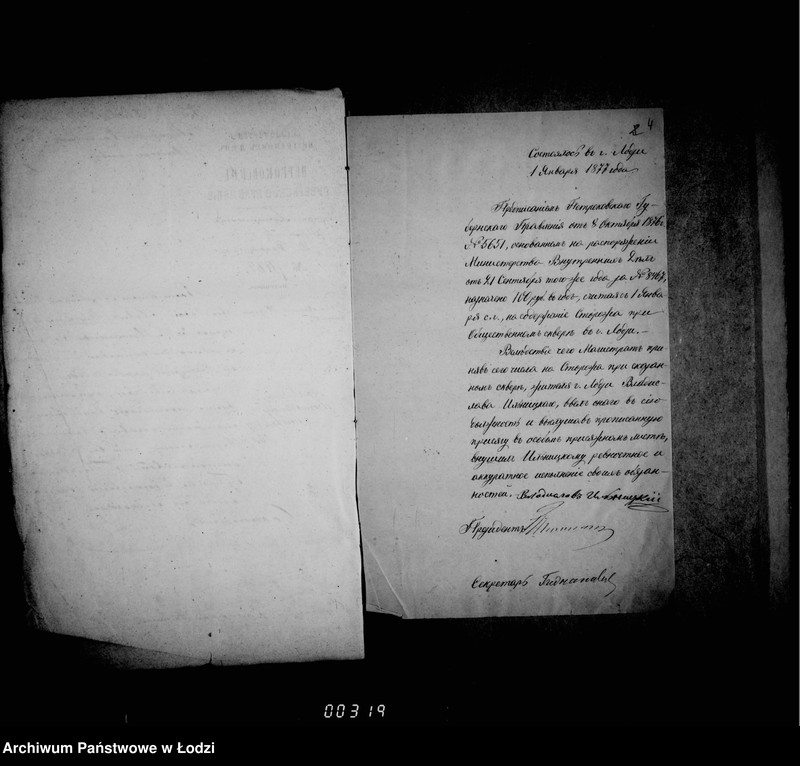 4
Состоялось въ г. Лодзи
1 Января 1877 года
Предписаніемъ Петроковскаго Гу-
бернскаго Правленія отъ 8 Октября 1876 г.
№ 5651, основанномъ на распоряженіи
Министерства Внутреннихъ Дѣлъ
отъ 21 Сентября того-же года за № 8467,
назначено 100 руб. въ годъ, считая съ 1 Янва-
ря с.г., на содержаніе Сторожа при
Общественномъ скверѣ въ г. Лодзи.-
Вслѣдствіе чего Магистратъ при-
нявъ сего числа на Сторожа при сказан-
номъ скверѣ, жителя г. Лодзи Владис-
лава Ильницкаго, ввелъ онаго въ сію
должность и выслушавъ прописанную
присягу въ особомъ присяжномъ листѣ,
внушилъ Ильницкому ревностное и
аккуратное исполненіе своихъ обязан-
ностей.
Президентъ
Секретарь
00319
Archiwum Państwowe w Łodzi